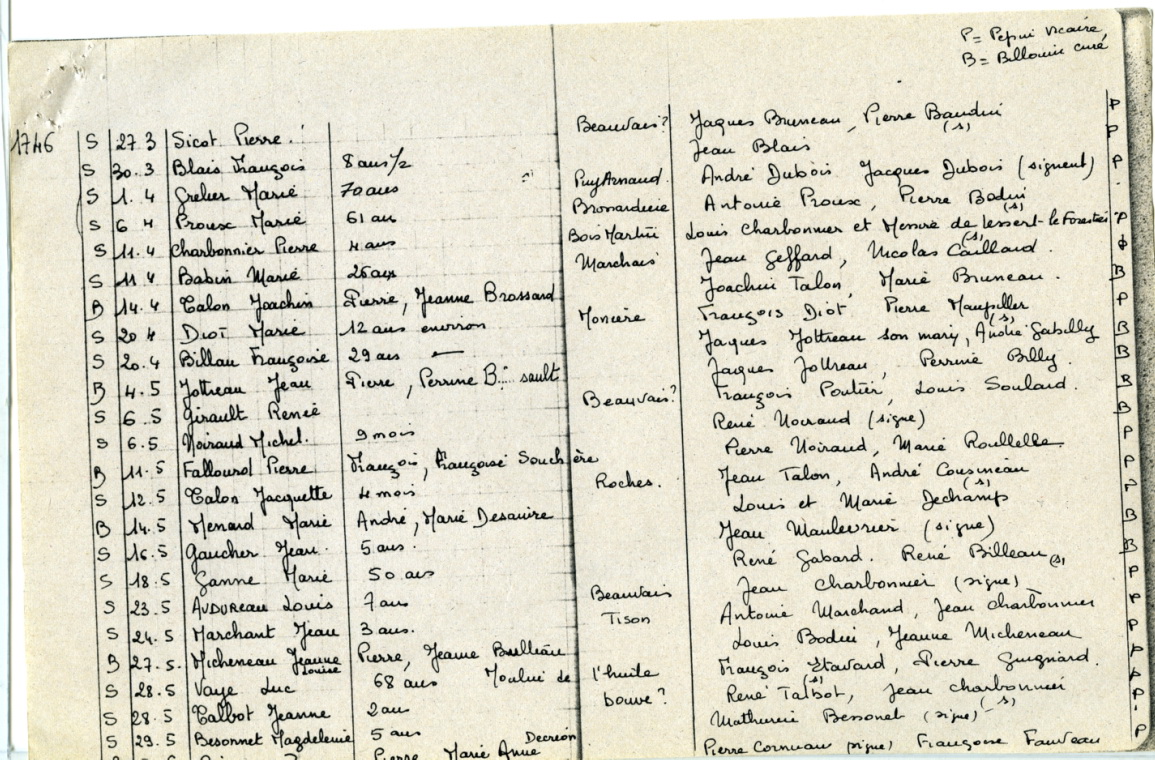 P = Pepin vicaire
B = Billouin curé
1746 S 27.3 Sicot Pierre. Beauvais? Jaques Bruneau, Pierre Baudin (s) P
S 30.3 Blais François 8 ans 1/2 Jean Blais P
S 1.4 Grelier Marie 70 ans Puy Arnaud. André Dubois Jacques Dubois (signent) P
S 6 4 Proux Marie 61 ans Bronarderie Antonie Proux, Pierre Bodin (s)
S 11.4 Charbonnier Pierre 4 ans Bois Martin Louis Charbonnier et Messire de lessert-le Forestier (s) P
S 11 4 Babin Marie 26 ans Marchais Jean Geffard, Nicolas Caillard.
B 14.4 Talon Joachin Pierre, Jeanne Brossard Joachin Talon, Marie Bruneau. B
S 20 4 Diot Marie 12 ans environ Moncère François Diot Pierre Maupiller (s) P
S 20.4 Billau Françoise 29 ans Jaques Jottreau son mary, André Gabilly B
B 4.5 Jottreau Jean Pierre, Perrine B... sault Jaques Jottreau, Perrine Billy. B
S 6.5 Girault Renée Beauvais? François Poutier, Louis Soulard. B
S 6.5 Noiraud Michel. 9 mois René Noiraud (signe) B
B 11.5 Fallourd Pierre François, Françoise Souchère Pierre Noiraud, Marie Roullelle P
S 12.5 Talon Jacquette 4 mois Roches. Jean Talon, André Cousineau (s) P
B 14.5 Menard Marie André, Marie Desauire Louis et Marie Dechamp ?
S 16.5 Gaucher Jean. 5 ans. Jean Maulevrier (signe) B
S 18.5 Ganne Marie 50 ans René Gabard. René Billeau (s) B
S 23.5 AUDUREAU Louis 7 ans Beauvais Jean Charbonnier (signe) P
S 24.5 Marchant Jean 3 ans. Tison Antonie Marchand, Jean Charbonnier P
B 27.5. Micheneau Jeanne Louise Pierre, Jeanne Bulleau Louis Bodin, Jeanne Micheneau P
S 28.5 Vaye Luc 68 ans Moulin de l'huile François Etavard, Pierre Guignard. (s) P
S 28.5 Talbot Jeanne 2 ans bouve? René Talbot, Jean Charbonnier (s) P
S 29.5 Besonnet Magdeleine 5 ans Mathurin Bessonet (signe) P
Pierre Marie Anne Decreon Pierre Cornuau (signe) Françoise Fauveau P